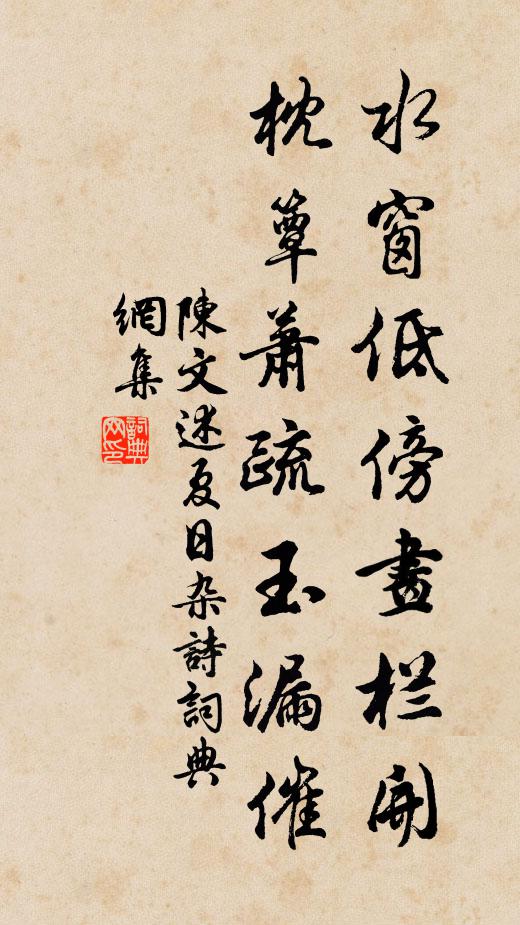 水窗低傍畫栏開
枕簟蕭疏玉漏催
陳文述夏日杂詩詞典
網集
詞典
网印